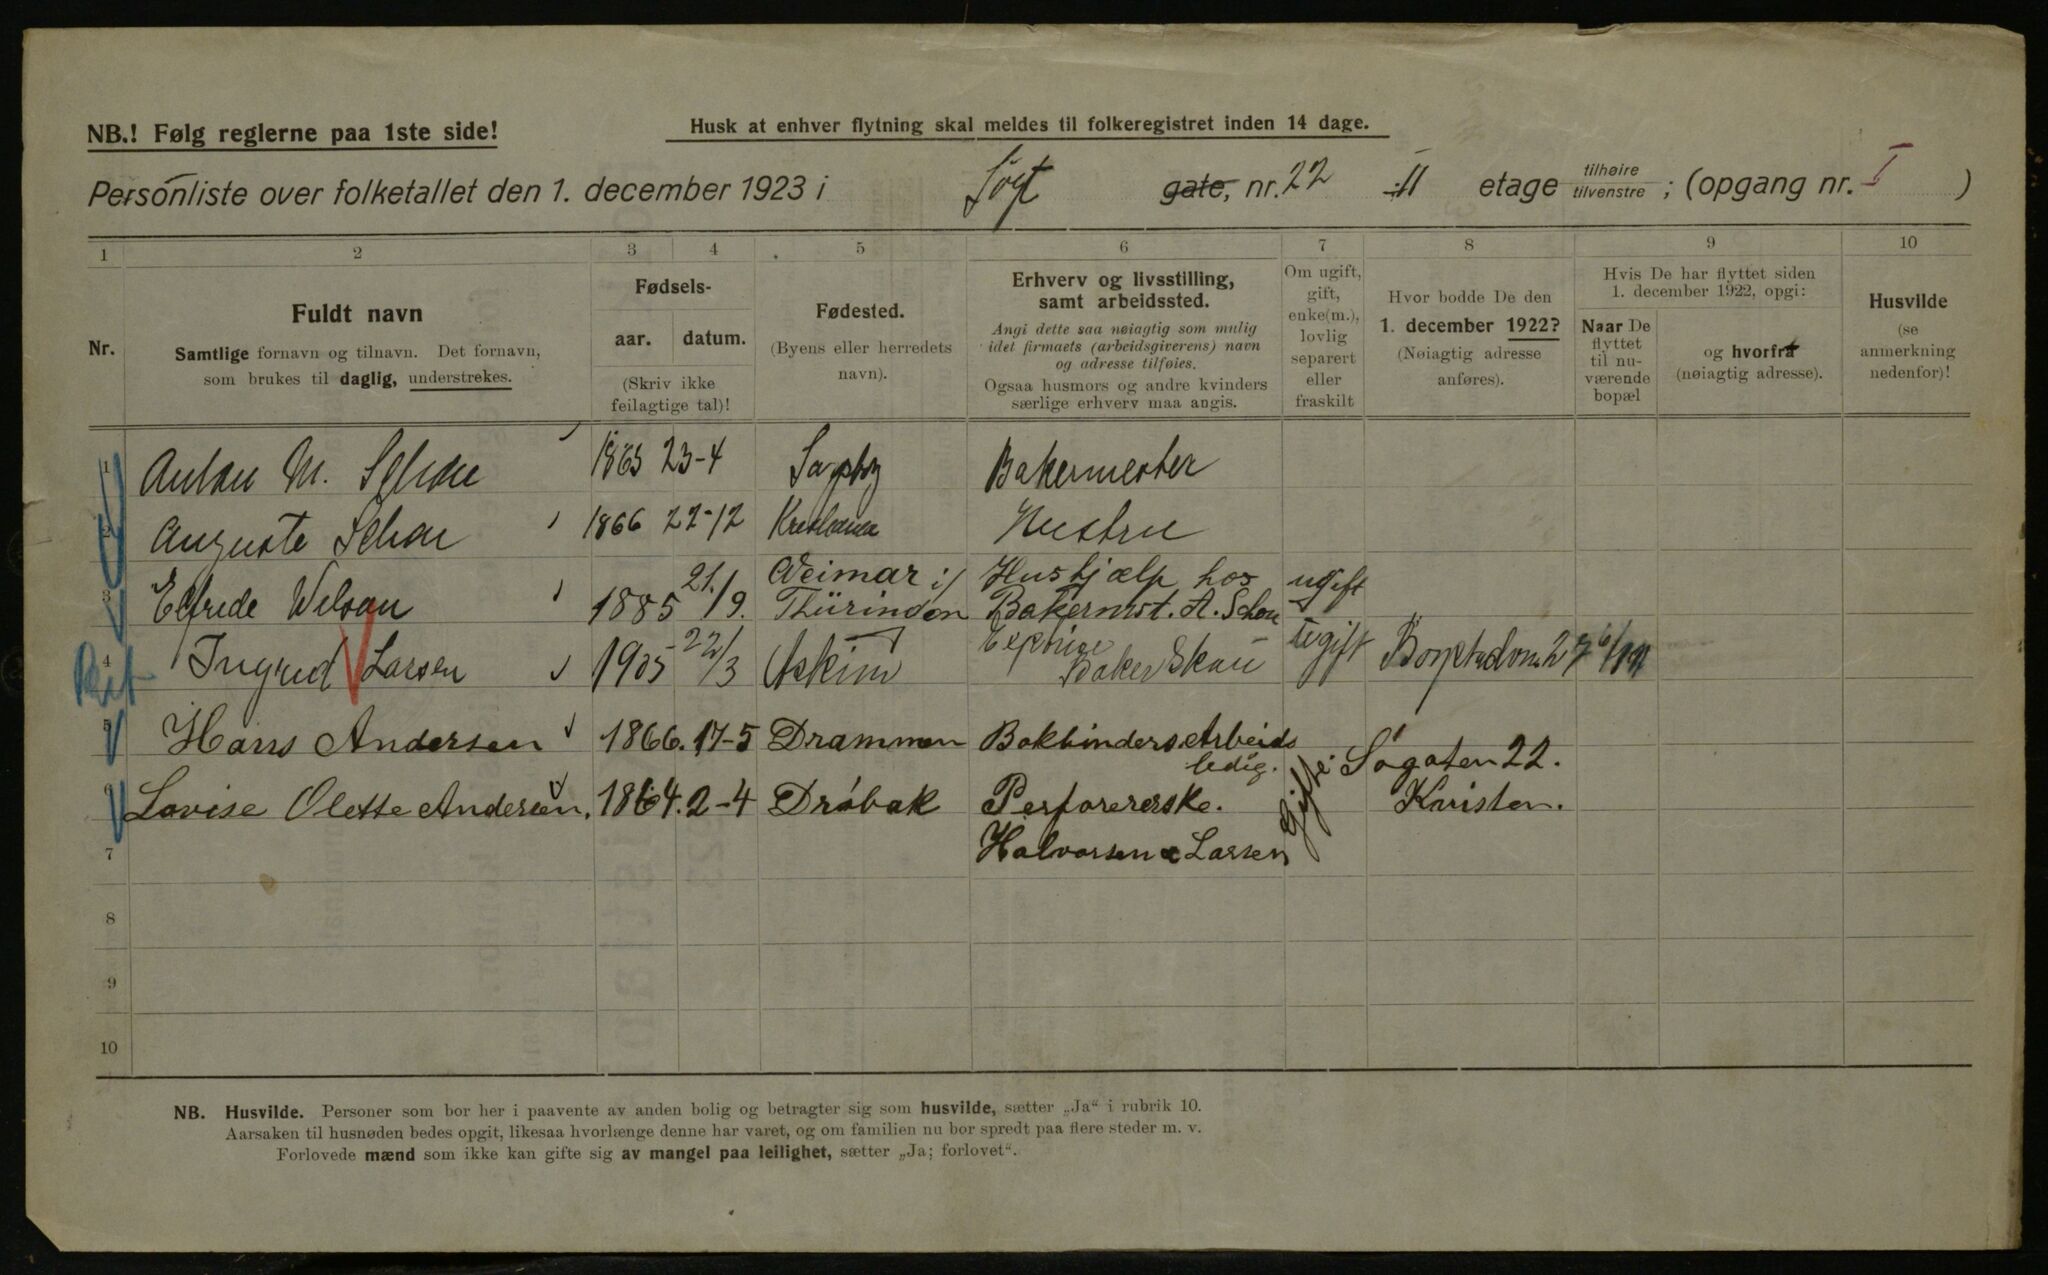 NB.! Følg reglerne paa 1ste side!
Husk at enhver flytning skal meldes til folkeregistret inden 14 dage.
Personliste over folketallet den 1. december 1923 i Sógt gate, nr. 22 II etage tilhøire tilvenstre ; (opgang nr. I )
1 2 3 4 5 6 7 8 9 10
Nr.
Fuldt navn
Samtlige fornavn og tilnavn. Det fornavn,
som brukes til daglig, understrekes.
Fødsels-
aar. datum.
(Skriv ikke
feilagtige tal)!
Fødested.
(Byens eller herredets
navn).
Erhverv og livsstilling,
samt arbeidssted.
Angi dette saa nøiagtig som mulig
idet firmaets (arbeidsgiverens) navn
og adresse tilføies.
Ogsaa husmors og andre kvinders
særlige erhverv maa angis.
Om ugift,
gift,
enke(m.),
lovlig
separert
eller
fraskilt
Hvor bodde De den
1. december 1922?
(Nøiagtig adresse
anføres).
Hvis De har flyttet siden
1. december 1922, opgi:
Naar De
flyttet
til nu-
værende
bopæl
og hvorfra
(nøiagtig adresse).
Husvilde
(se
anmerkning
nedenfor)!
1 Anton M. Schou 1865 23-4 Sarpsbg Bakermester
2 Auguste Schou 1866 22-12 Kristiania Hustru
3 Elfrede Wilsau 1885 21./9. Weimar i/ Thüringen Hushjælp hos Bakermst. A. Schou ugift
4 Ingrid Larsen 1905 22/3 Askim Baker Skau Ugift
5 Hans Andersen 1866. 17-5 Drammen Bokbinders.Arbeids
ledig. Gifte Sógaten 22.
6 Lovise Olette Andersen, 1864. 2-4 Dróbak Perforererske. Kristen.
7 Halvorsen & Larsen
8
9
10
NB. Husvilde. Personer som bor her i paavente av anden bolig og betragter sig som husvilde, sætter „Ja“ i rubrik 10.
Aarsaken til husnøden bedes opgit, likesaa hvorlænge denne har varet, og om familien nu bor spredt paa flere steder m. v.
Forlovede mænd som ikke kan gifte sig av mangel paa leilighet, sætter „Ja; forlovet“.